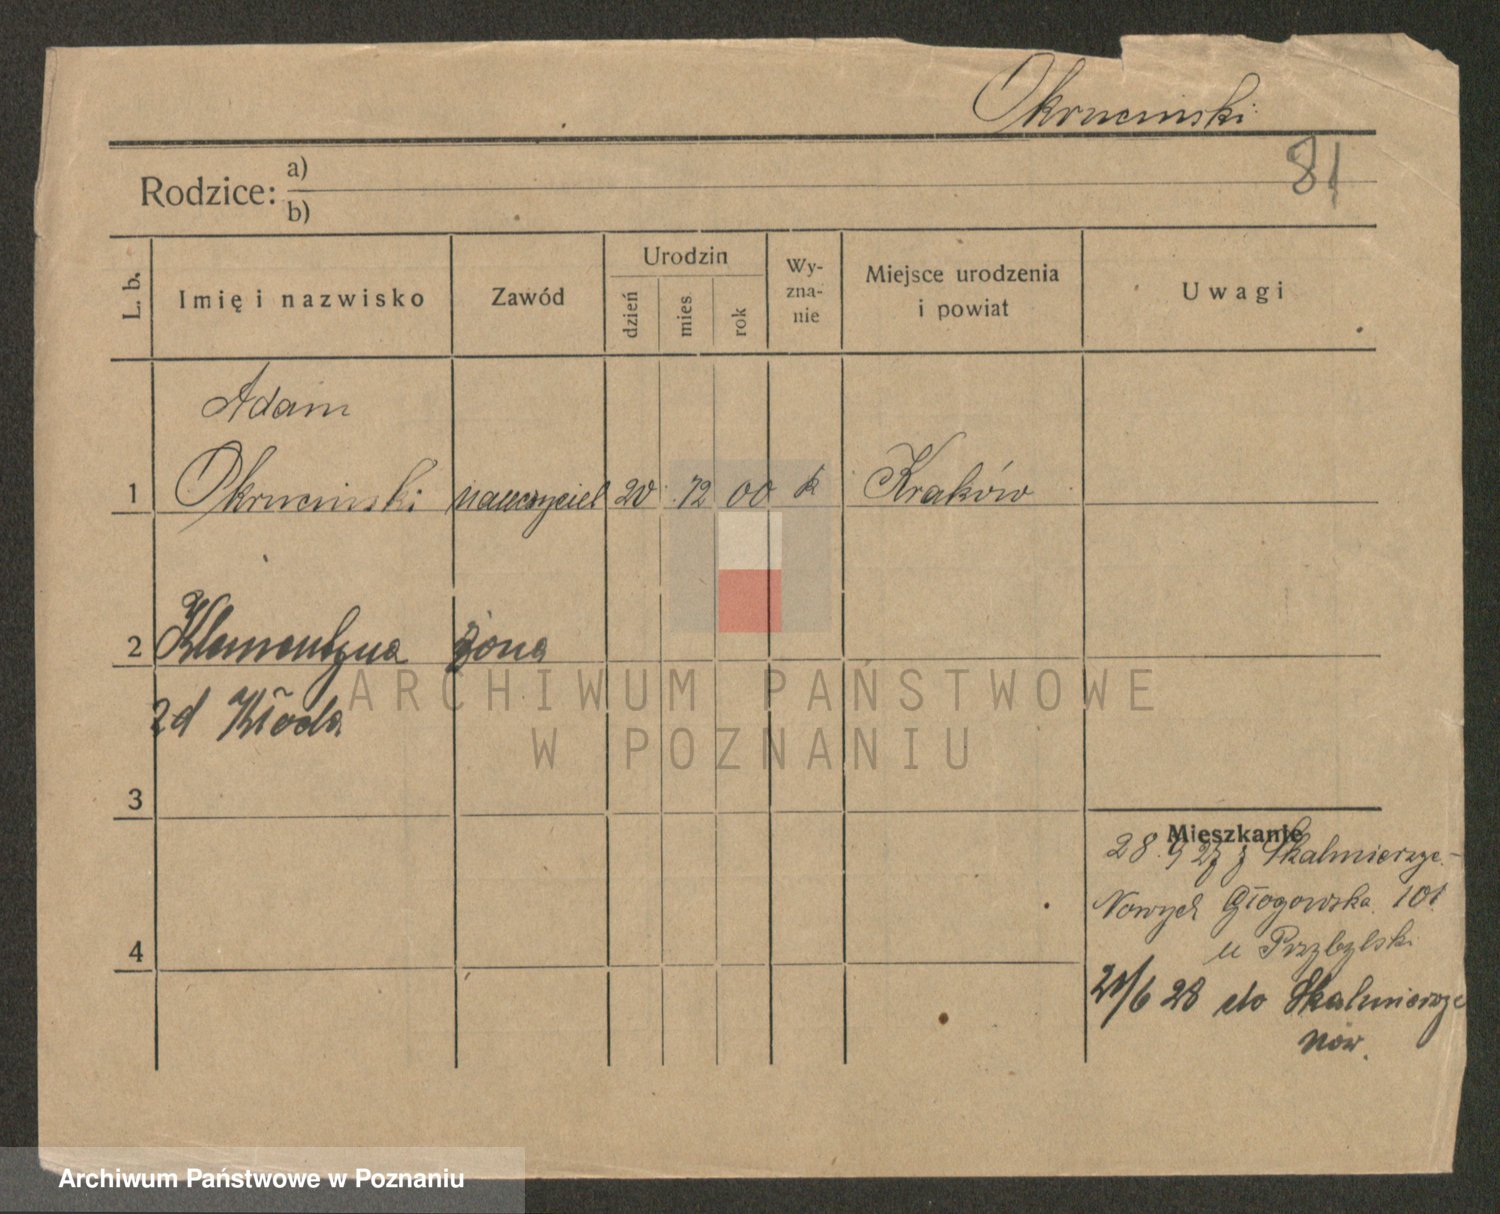 Okruciński
81
Rodzice: a)
b)
L. b.
Imię i nazwisko
Zawód
Urodzin
dzień
mies
rok
Wy-
zna-
nie
Miejsce urodzenia
i powiat
Uwagi
Adam
1 Okruciński nauczyciel 20 12 00 k Kraków
2 Klementyna żona
zd Kłoda
3
4
Mieszkanie
28. 9 27 z Skalmierzyc-
Nowych Głogowska 101
u Przybylski
21/6 28 do Skalmierzyc
Now.
ARCHIWUM PAŃSTWOWE
W POZNANIU
Archiwum Państwowe w Poznaniu